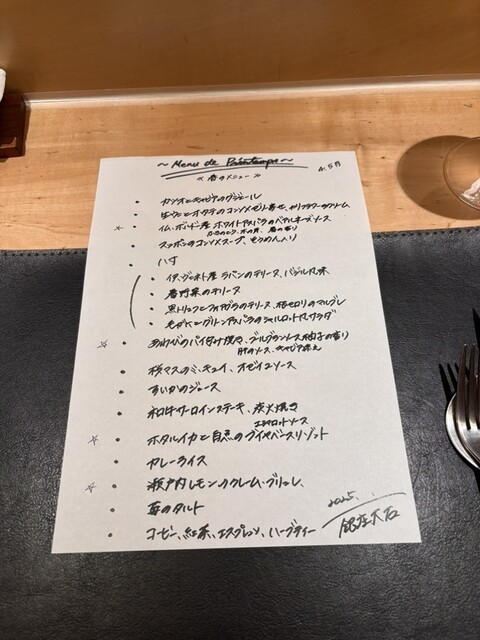 ~ Menu de Printemps ~
4.5月
《春のメニュー》
・カツオとキャビアのブジエール
・生ウニとホタテのコンソメゼリー寄せ、カリフラワークリーム
☆・仏、ボルドー産 ホワイトアスパラのベアルネーズソース
・スッポンのコンソメスープ、そうめん入り
・八寸
・イタリヴェネト産 ラパンのテリーヌ、バジル風味
・春野菜のテリーヌ
・黒トリュフとフォアグラのテリーヌ、根セロリのマルブレ
・毛ガニとグリーンアスパラのシャルロット仕立サラダ
☆・あわびのパイ付け焼き、ブールブランソース柚子の香り
肝のソース、キャビア添え
・桜マスのミ・キュイ、オゼイユソース
・すいかのジュース
・和牛サーロインステーキ、炭火焼き
エシャロットソース
☆・ホタルイカと白魚のブイヤベースリゾット
・カレーライス
☆・瀬戸内レモンのクレーム・ブリュレ
・苺のタルト
・コーヒー、紅茶、エスプレッソ、ハーブティー
2025.
銀座大石